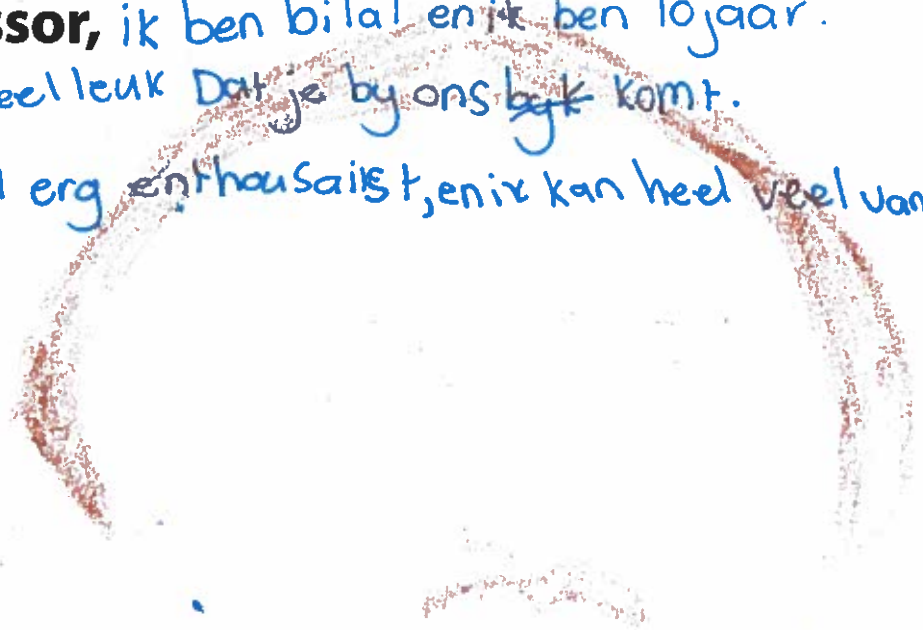 ssor, ik ben bilal en ik ben 10 jaar.
eel leuk Dat je by ons byk komt.
erg enthousaiist, en ik kan heel veel van